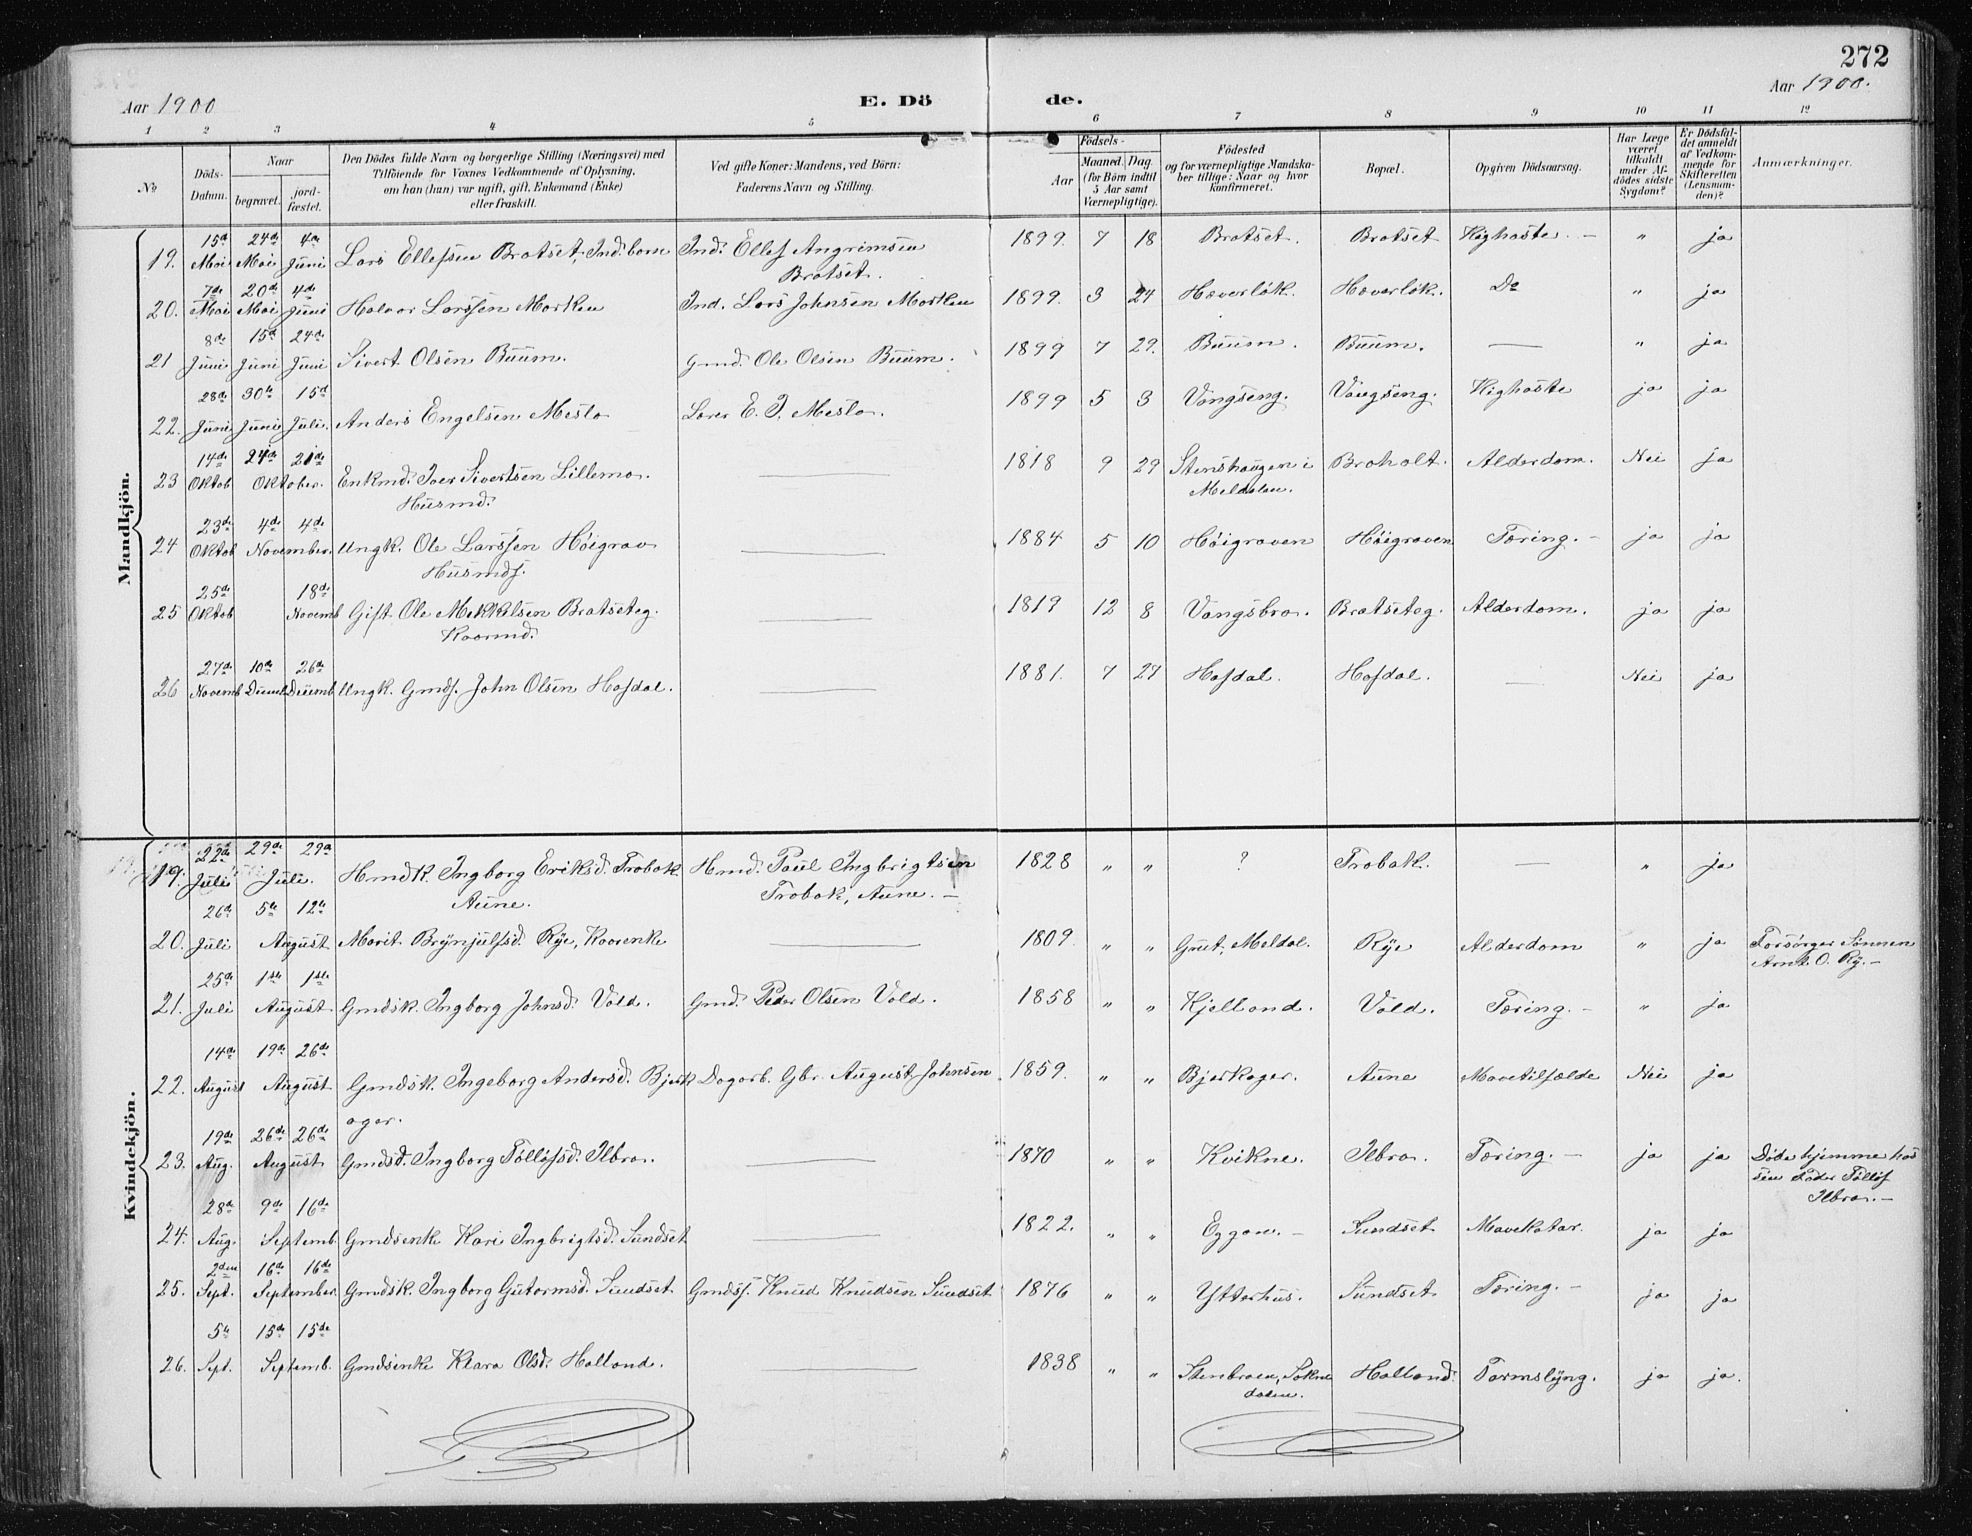 272
Aar 1900
E. Dö de.
Aar 1900.
1 2 3 4 5 6 7 8 9 10 11 12
No
Döds-Datum.
Naar begravet. jordfæstet.
Den Dödes fulde Navn og borgerlige Stilling (Næringsvei) med Tilföiende for Voxnes Vedkommende af Oplysning, om han (hun) var ugift, gift, Enkemand (Enke) eller fraskilt.
Ved gifte Koner: Mandens, ved Börn: Faderens Navn og Stilling.
Födsels- Aar Maaned. Dag. (for Börn indtil 5 Aar samt Værnepligtige).
Födested og for værnepligtige Mandskaber tillige: Naar og hvor konfirmeret.
Bopæl.
Opgiven Dödsaarsag.
Har Læge været tilkaldt under Afdödes sidste Sygdom?
Er Dödsfaldet anmeldt af Vedkommende for Skifteretten (Lensmanden)?
Anmærkninger.
Mandkjön.
19. 15de Mai 24de Mai 4de Juni Lars Ellefsen Bratset, Ind. barn Ind. Ellef Angrimsen Bratset. 1899. 7 18 Bratset. Bratset Kighoste. - " ja
20. 7de Mai 20de Mai 4de Juni Halvor Larssen Morken Ind. Lars Johnsen Morken 1899. 3 24 Hæverløk. Hæverløk. Do " ja
21 8de Juni 15de Juni 24de Juni Sivert Olsen Buum. Gmd. Ole Olsen Buum. 1899 7 29. Buum. Buum. — " ja
22. 28de Juni 30te Juni 15de Juli. Anders Engelsen Meslo Lærer E. J. Meslo. 1899 5 3 Vangseng. Vangseng. Kighoste ja ja
23 14de Oktob 21de 21de Oktober. Enkmd. Iver Sivertsen Lillemo. Husmd. — 1818 9 29 Stenshaugen i Meldalen. Broholt. Alderdom. Nei ja
24 23de Oktob 4de 4de November. Ungk. Ole Larssen Høigrav Husmds. — 1884 5 10 Høigraven Høigraven Tæring. - ja ja
25 25de Oktob 18de Novemb Gift Ole Mekkelsen Bratseteg. Kaarmd. — 1819 12 8 Vangsbro. Bratseteg. Alderdom. ja ja
26 27de Novemb 10de Decemb 26de Decemb Ungk. Gmds. John Olsen Hafdal. — 1881. 7 27 Hafdal. Hafdal. — Nei ja
Kvindekjön.
19. 22de Juli 29de 29de Juli. Hmdk. Ingborg Eriksd. Trobak Aune. Hmd. Paul Ingbrigtsen Trobak, Aune. - 1828 " " ? Trobak. — " ja
20. 26de Juli 5te 12te August Marit Brynjulfsd. Rye, Kaarenke — 1809. " " Grut, Meldal. Rye Alderdom " ja Forsørger Sønnen Arnt O. Ry. -
21. 25de Juli 1ste 1ste August Gmdsk. Ingborg Johnsd. Vold. Gmd. Peder Olsen Vold. 1858 " " Kjelland. Vold. Tæring. - " ja
22. 14de August 19de 26de August Gmdsk. Ingeborg Andersd. Bjerkager. Dagarb. Gbr. August Johnsen 1859. " " Bjerkager. Aune Mavetilfælde Nei ja
23. 19de Aug. 26de 26de August Gmdsd. Ingborg Tølløfsd. Ilbro. — 1870 " " Kvikne. Ilbro. Tæring. - ja ja Døde hjemme hos sin Fader Tølløf Ilbro. -
24. 28de Aug. 9de 16de Septemb. Gmdsenke Kari Ingbrigtsd. Sundset — 1822. " " Eggan. - Sundset Mavekatar. ja ja
25. 2den Sept. 16de 16de September. Gmdsk. Ingborg Gutormsd. Sundset Gmdss. Knud Knudsen Sundset 1876 " " Ytterhus. Sundset Tæring. - ja ja
26. 5te Sept. 15de 15de Septemb. Gmdsenke Klara Olsd. Halland. — 1838 " " Stenbroen, Soknedalen. Halland. Tarmslyng. ja ja.